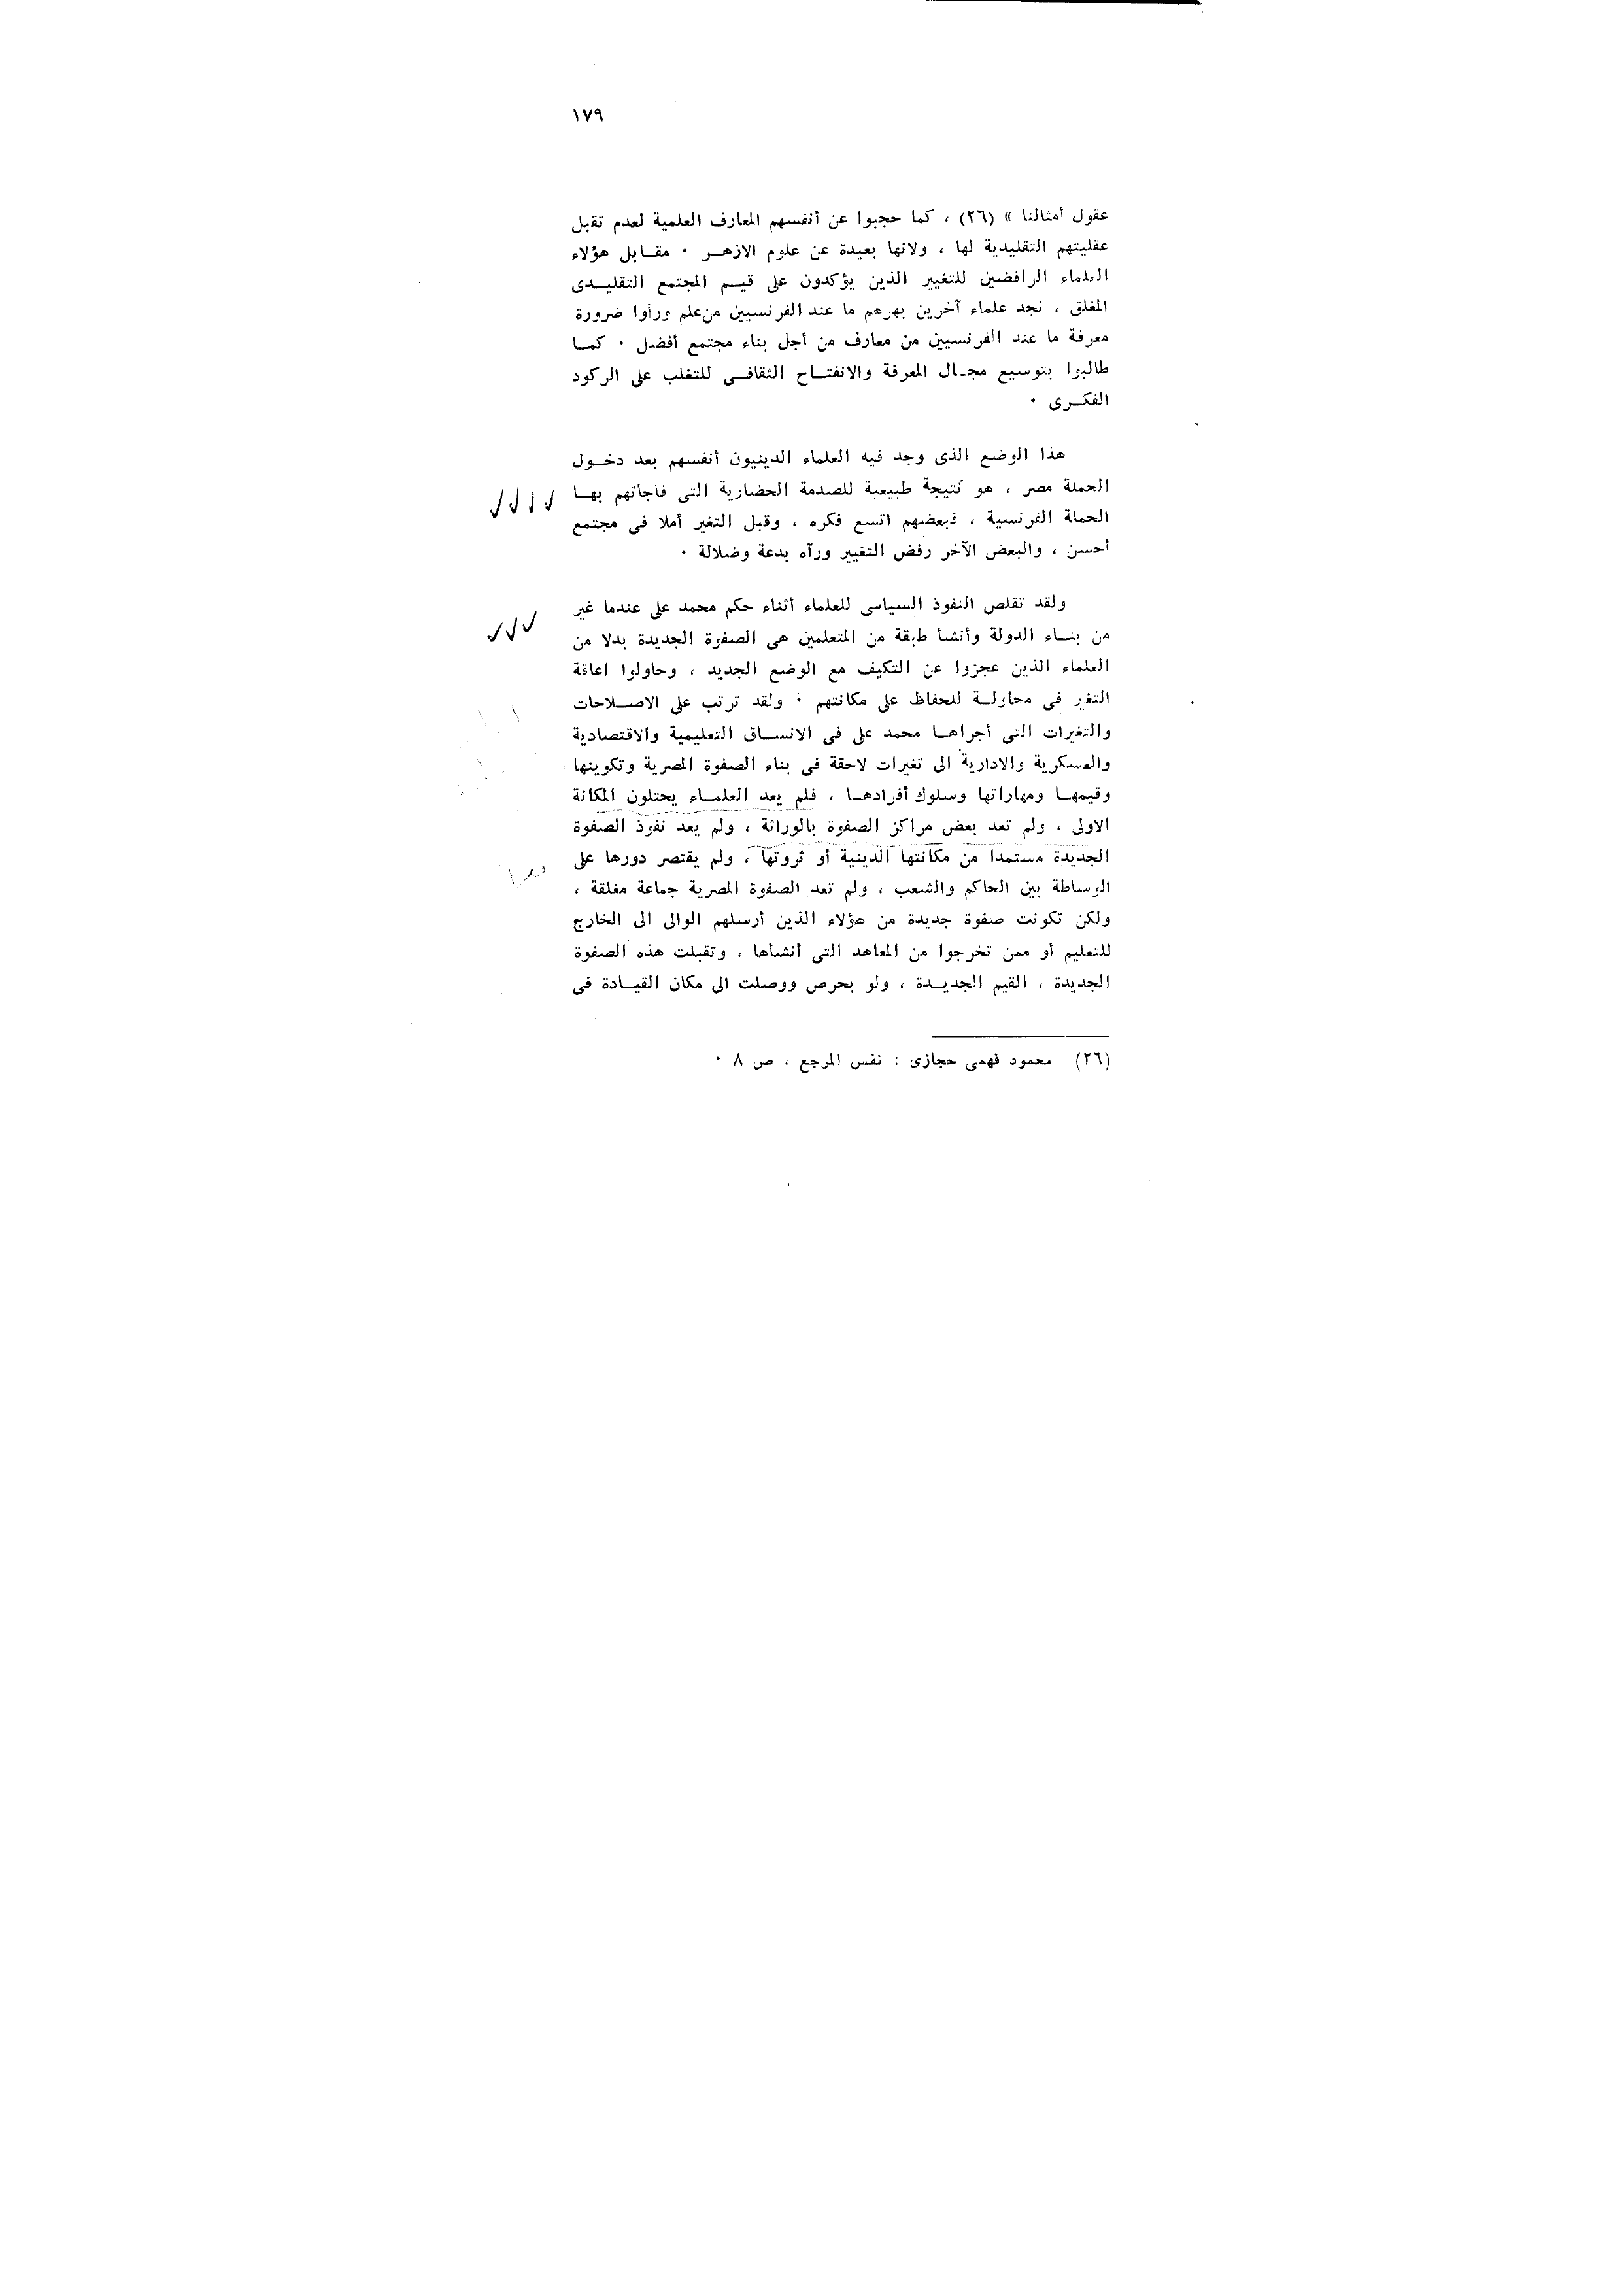 ١٧٩
عقول أمثالنا » (٢٦) ، كما حجبوا عن أنفسهم المعارف العلمية لعدم تقبل
عقليتهم التقليدية لها ، ولانها بعيدة عن علوم الازهــر ٠ مقــابل هؤلاء
العلماء الرافضين للتغيير الذين يؤكدون على قيــم المجتمع التقليــدى
المغلق ، نجد علماء آخرين بهرهم ما عند الفرنسيين من علم ورأوا ضرورة
معرفة ما عند الفرنسيين من معارف من أجل بناء مجتمع أفضل ٠ كمــا
طالبوا بتوسيع مجـال المعرفة والانفتــاح الثقافــى للتغلب على الركود
الفكــرى ٠
هذا الوضع الذى وجد فيه العلماء الدينيون أنفسهم بعد دخــول
الحملة مصر ، هو نتيجة طبيعية للصدمة الحضارية التى فاجأتهم بهــا
الحملة الفرنسية ، فبعضهم اتسع فكره ، وقبل التغير أملا فى مجتمع
أحسن ، والبعض الآخر رفض التغيير ورآه بدعة وضلالة ٠
ولقد تقلص النفوذ السياسى للعلماء أثناء حكم محمد على عندما غير
من بنــاء الدولة وأنشأ طبقة من المتعلمين هى الصفوة الجديدة بدلا من
العلماء الذين عجزوا عن التكيف مع الوضع الجديد ، وحاولوا اعاقة
التغير فى محاولــة للحفاظ على مكانتهم ٠ ولقد ترتب على الاصــلاحات
والتغيرات التى أجراهــا محمد على فى الانســاق التعليمية والاقتصادية
والعسكرية والادارية الى تغيرات لاحقة فى بناء الصفوة المصرية وتكوينها
وقيمهــا ومهاراتها وسلوك أفرادهــا ، فلم يعد العلمــاء يحتلون المكانة
الاولى ، ولم تعد بعض مراكز الصفوة بالوراثة ، ولم يعد نفوذ الصفوة
الجديدة مستمدا من مكانتها الدينية أو ثروتها ، ولم يقتصر دورها على
الوساطة بين الحاكم والشعب ، ولم تعد الصفوة المصرية جماعة مغلقة ،
ولكن تكونت صفوة جديدة من هؤلاء الذين أرسلهم الوالى الى الخارج
للتعليم أو ممن تخرجوا من المعاهد التى أنشأها ، وتقبلت هذه الصفوة
الجديدة ، القيم الجديــدة ، ولو بحرص ووصلت الى مكان القيــادة فى
(٢٦) محمود فهمى حجازى : نفس المرجع ، ص ٨ ٠